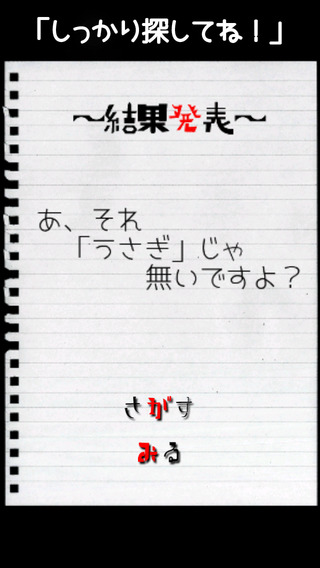 「しっかり探してね！」
～結果発表～
あ、それ
「うさぎ」じゃ
無いですよ？
さがす
みる